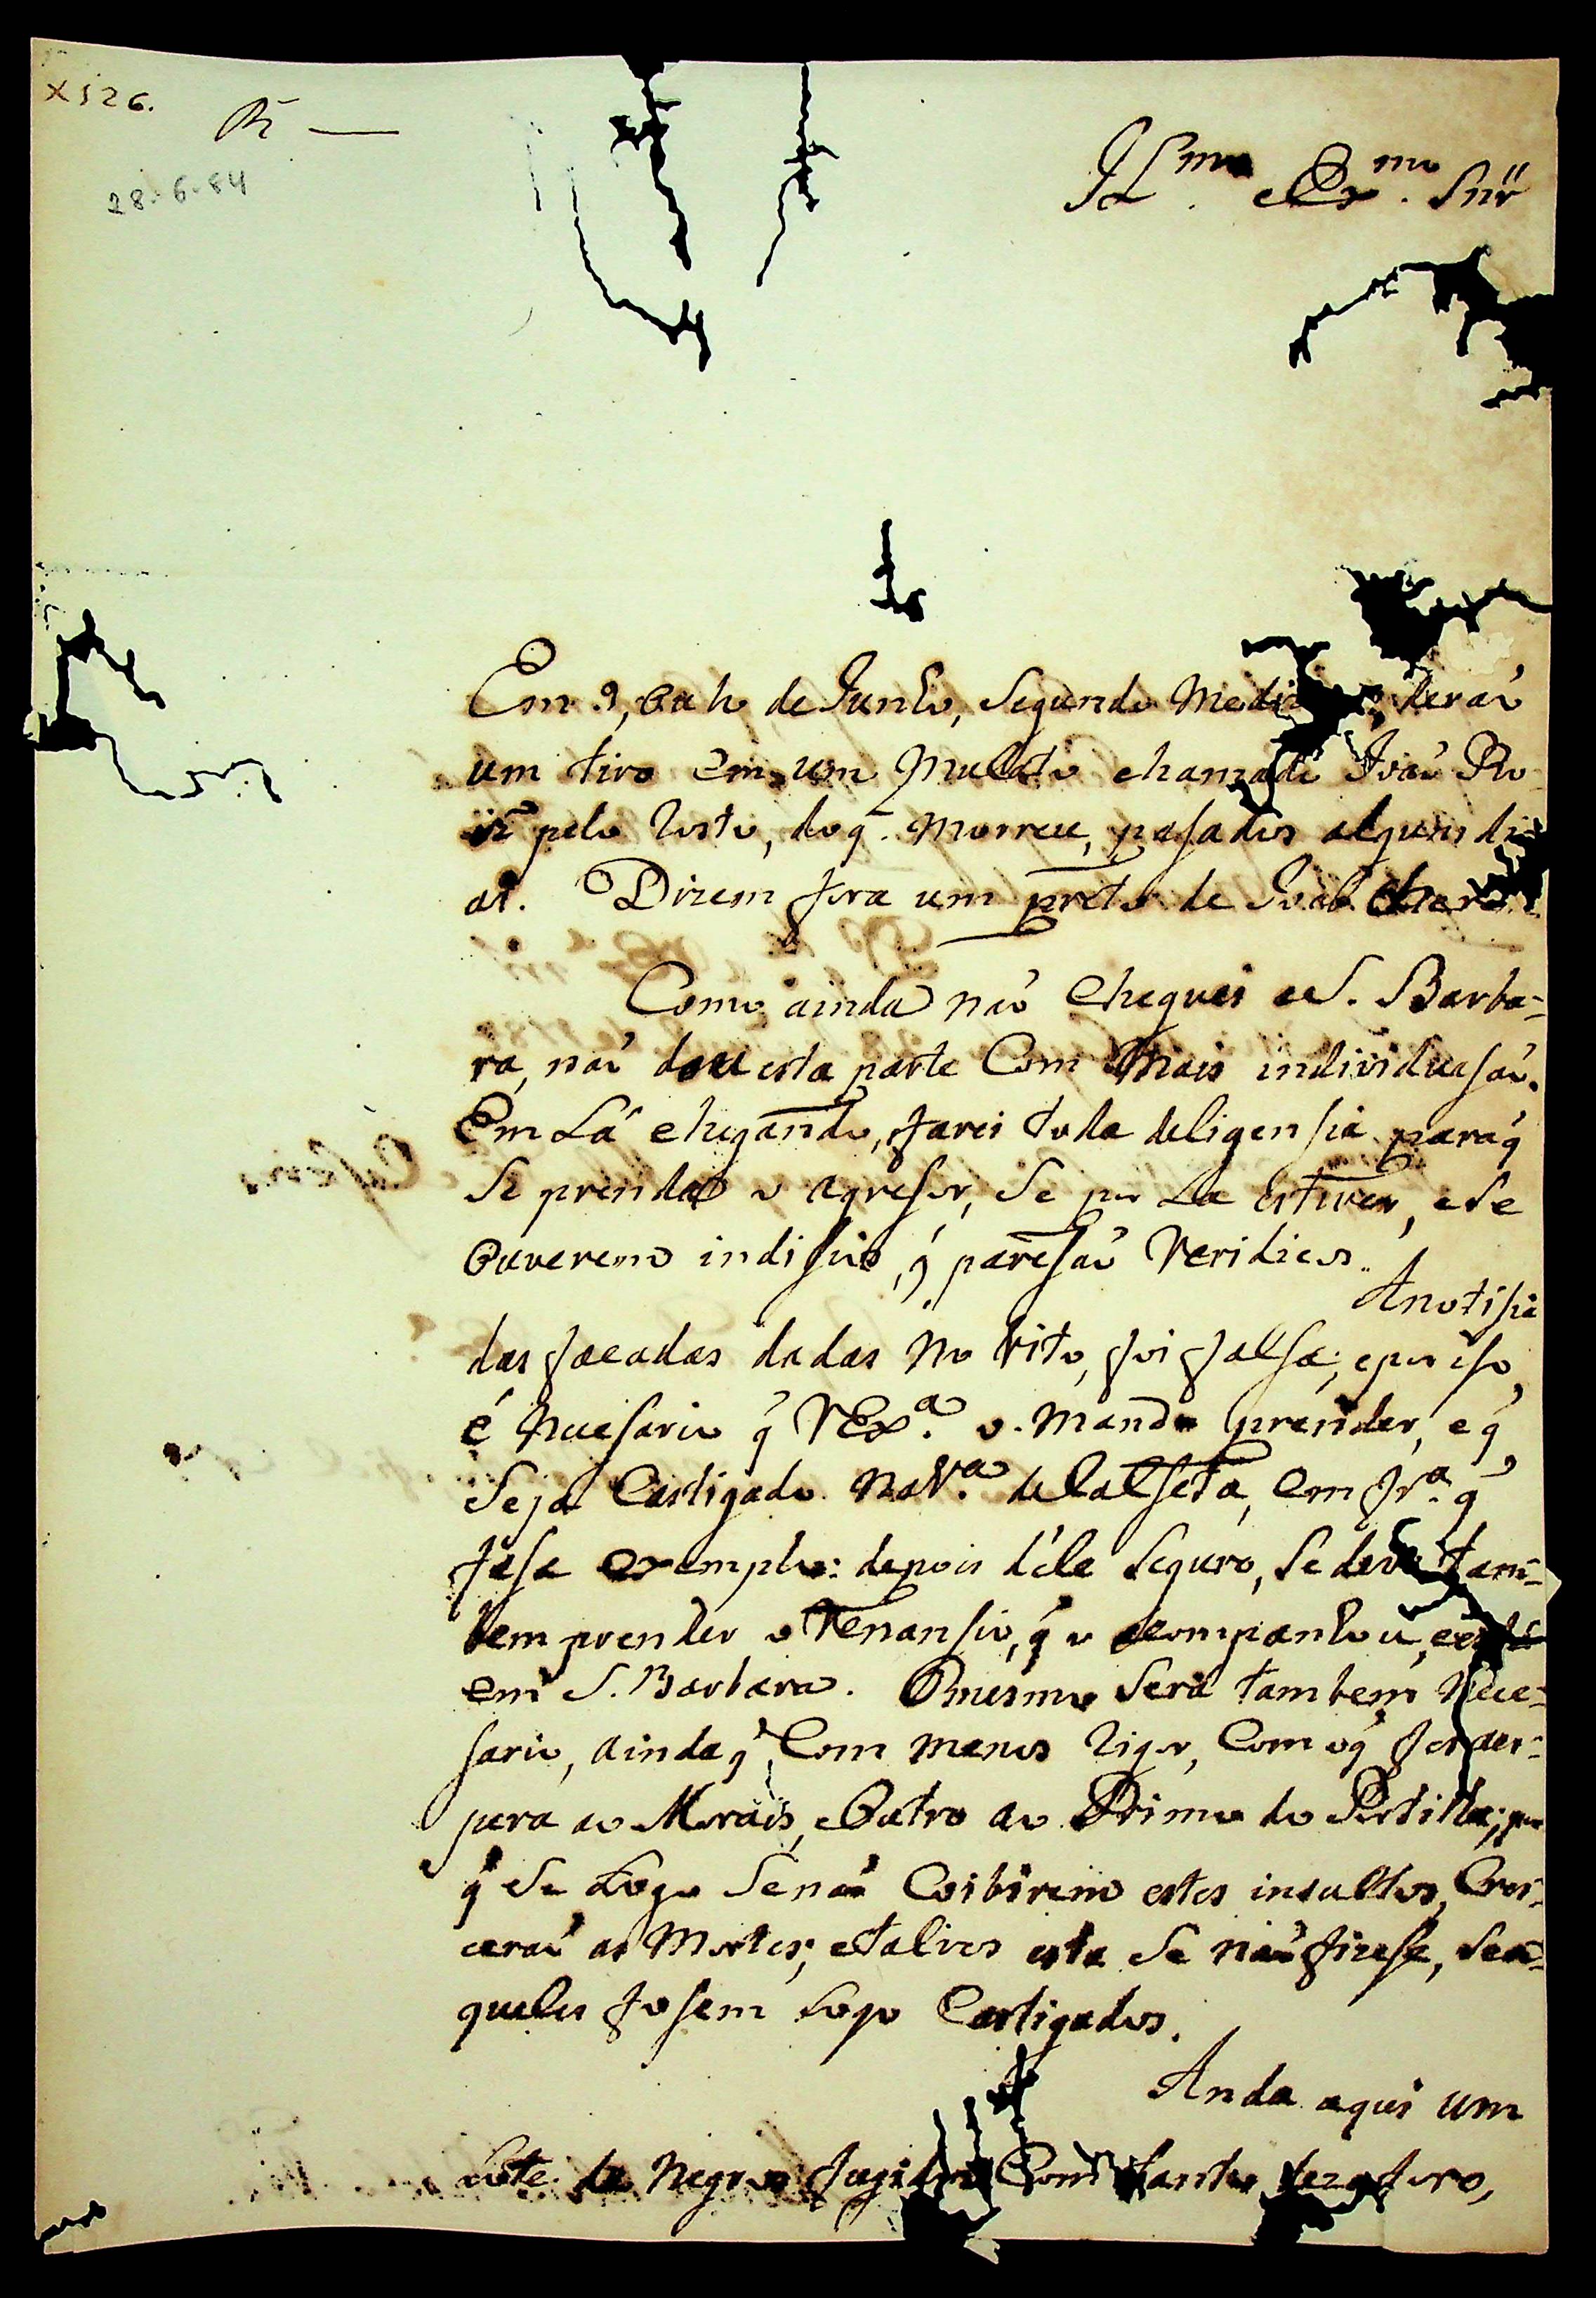 X526.
R̃
28-6-84
Il.mo e Ex.mo Snr̃
Em 9, ou h de Junho, Segundo Me deraõ
um tiro em um Mulato chamado Joaõ Ro
pelo Rosto, do q̃ Morreu, pasados alguns di
as. Dizem fora um preto de
Como ainda naõ Cheguei a S. Barba-
ra, naõ dou esta parte Com Mais individuasaõ.
Em Lá chegando, farei toda deligensia para q̃
Se prenda o agresor, Se por La estiver, e Se
Ouverem indisios, q̃ paresaõ Veridicos.
A notisia
das facadas dadas No Vito, foi falsa; e por iso,
é Nuesario q̃ VEx.a o Mande prender, e q̃
Seja Castigado Na V.a de Calseta, em fr.a q̃
fasa exemplo: depois d'ele Seguro, Se deve tam-
bem prender o Venansio, q̃ o acompanhou,
em S. Barbara. O mesmo Será tambem Nece-
sario, ainda q̃ Com menos Rigor, Com o q̃
para ao Morais, e Outro ao Primo do Portilho; por
q̃ Se Logo Se naõ Coibirem estes insultos, Cres-
ceraõ as Mortes; e talves esta Se naõ fizese, Se a-
queles fosem Logo Castigados.
Anda aqui um
Lote de Negros fugidos